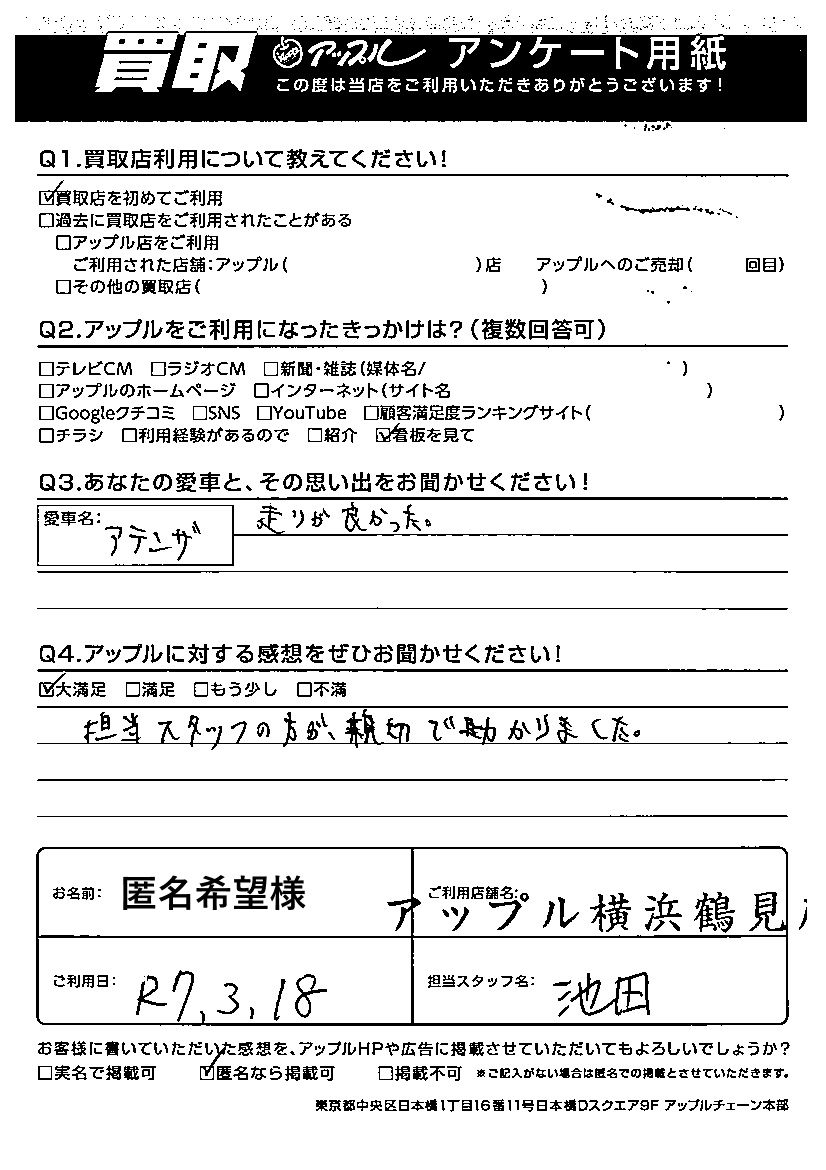 買取 アップル アンケート用紙
この度は当店をご利用いただきありがとうございます!
Q1.買取店利用について教えてください!
☑買取店を初めてご利用
□過去に買取店をご利用されたことがある
□アップル店をご利用
ご利用された店舗:アップル( )店 アップルへのご売却( 回目)
□その他の買取店( )
Q2.アップルをご利用になったきっかけは?(複数回答可)
□テレビCM □ラジオCM □新聞・雑誌(媒体名/ )
□アップルのホームページ □インターネット(サイト名 )
□Googleクチコミ □SNS □YouTube □顧客満足度ランキングサイト( )
□チラシ □利用経験があるので □紹介 ☑看板を見て
Q3.あなたの愛車と、その思い出をお聞かせください!
愛車名: アテンザ 走りが良かった。
Q4.アップルに対する感想をぜひお聞かせください!
☑大満足 □満足 □もう少し □不満
担当スタッフの方が、親切で助かりました。
お名前: 匿名希望様 ご利用店舗名: アップル横浜鶴見
ご利用日: R7.3.18 担当スタッフ名: 池田
お客様に書いていただいた感想を、アップルHPや広告に掲載させていただいてもよろしいでしょうか?
□実名で掲載可 ☑匿名なら掲載可 □掲載不可 ※ご記入がない場合は匿名での掲載とさせていただきます。
東京都中央区日本橋1丁目16番11号日本橋Dスクエア9F アップルチェーン本部